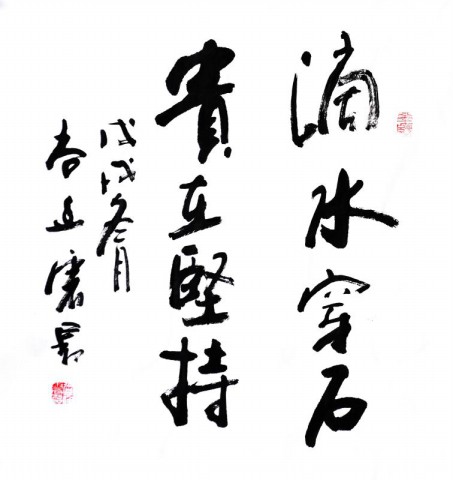 滴水穿石
貴在堅持
戊戌冬月